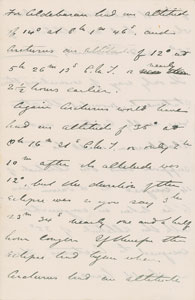 For Aldebaran had an altitude
of 14° at 8h 1m 46s, and
Arcturus an altitude of 12° at
5h 26m 13s G.M.T. a nearly
2 1/2 hours earlier.
Again Arcturus would have
had an altitude of 35° at
8h 16m 21s G.M.T. or only 2h
10m after the altitude was
12°, but the duration of the
eclipse was as you say 3h
25m 34s nearly one and a half
hour longer. If therefore the
eclipse had begun when
Arcturus had an altitude